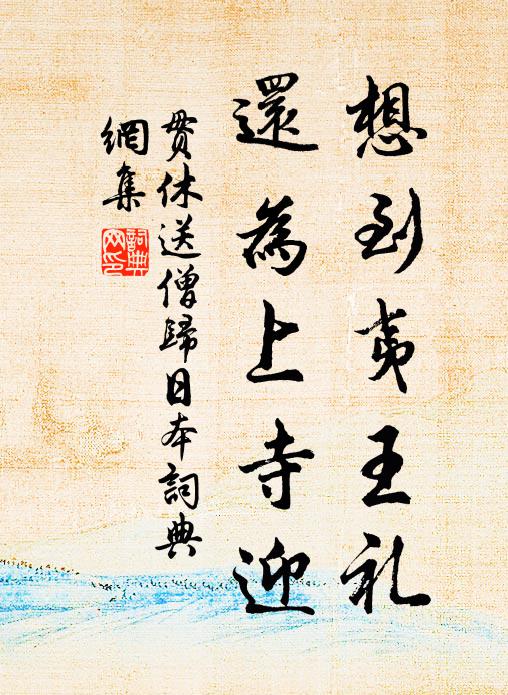 想到夷王礼
還為上寺迎
贯休送僧歸日本詞典
網集
詞典
网印